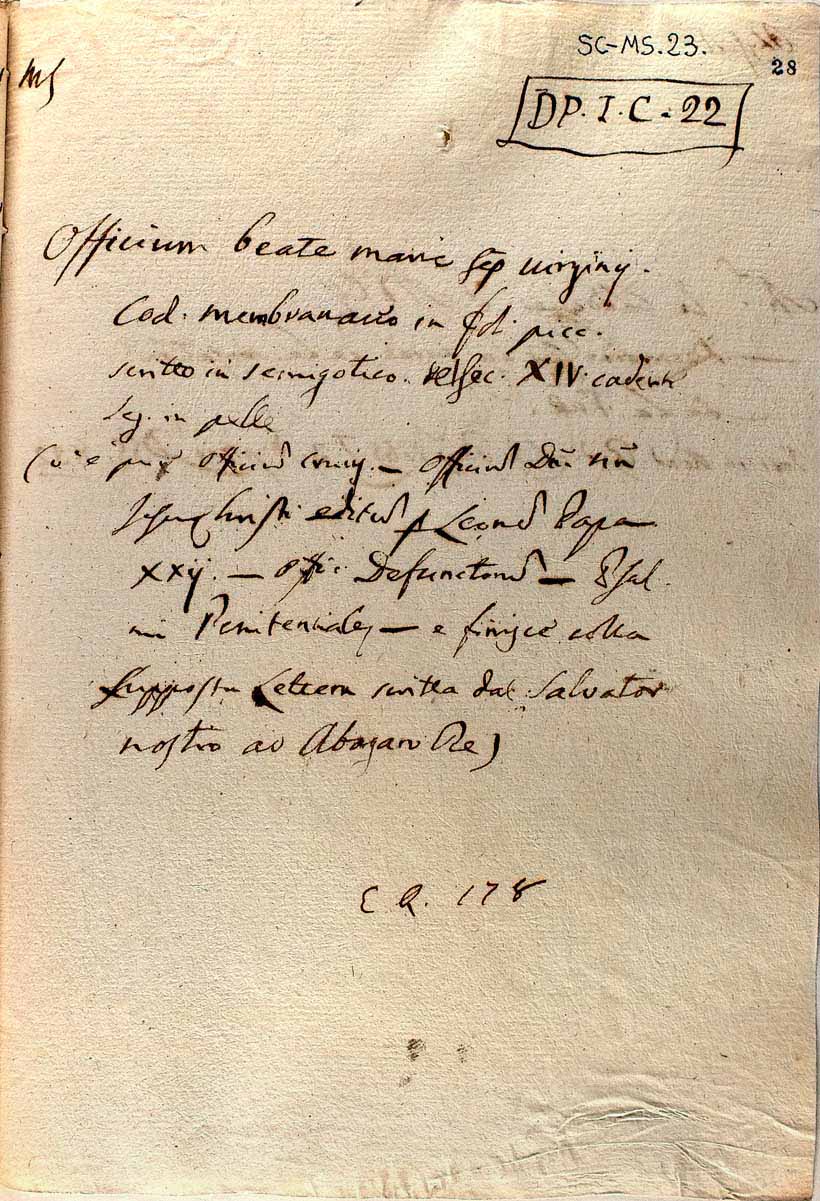 SC-MS.23.
28
MS
DP.I.C.22
Officium beate marie semp virginis.
Cod. membranaceo in fol. picc.
scritto in semigotico del sec. XIV. cadente
Leg. in pelle
(vi è pur officiū crucis — officiū Dñi nri
Jesu Christi editū p Leonē Papa
XXij. — offic. Defunctorū — Psal
mi Penitentiales — e finisce colla
supposta Lettera scritta dal Salvator
nostro ad Abagaro Re)
E Q. 178